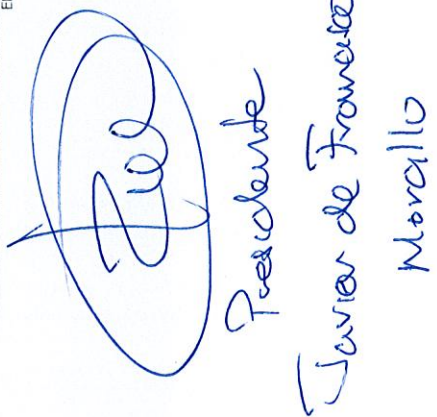 Presidente
Javier de Francisco
Morcillo